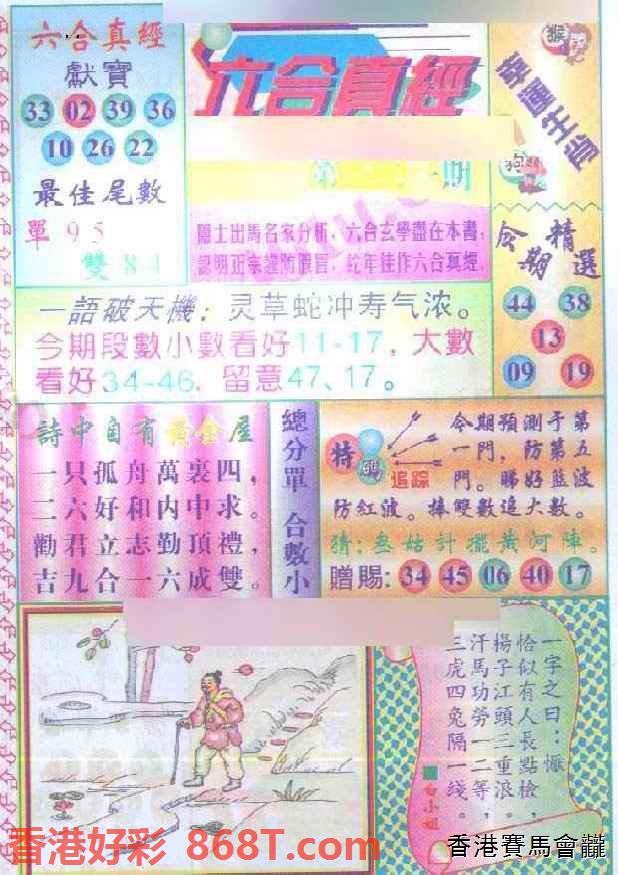 六合真經
獻寶
33 02 39 36
10 26 22
最佳尾數
單95
雙84
六合真經
第 期
隱士出馬名家分析，六合玄學盡在本書，
認明正宗謹防假冒，蛇年佳作六合真經，
幸運生肖
猴
狗
今期精選
44 38
13
09 19
一語破天機：灵草蛇冲寿气浓。
今期段數小數看好11-17，大數
看好34-46，留意47、17。
詩中自有黃金屋
一只孤舟萬裏四，
二六好和内中求。
勸君立志勤頂禮，
吉九合一六成雙。
總分單 合數小
特碼追踪
今期預測于第
一門，防第五
門。睇好藍波
防紅波。捧雙數追大數。
猜：叁姑計擺黃河陣。
贈賜：34 45 06 40 17
一字之曰：慨
恰似有人長點檢，
揚子江頭三重浪。
汗馬功勞一二等，
三虎四兔隔一线。
白小姐
香港好彩 868T.com
香港賽馬會